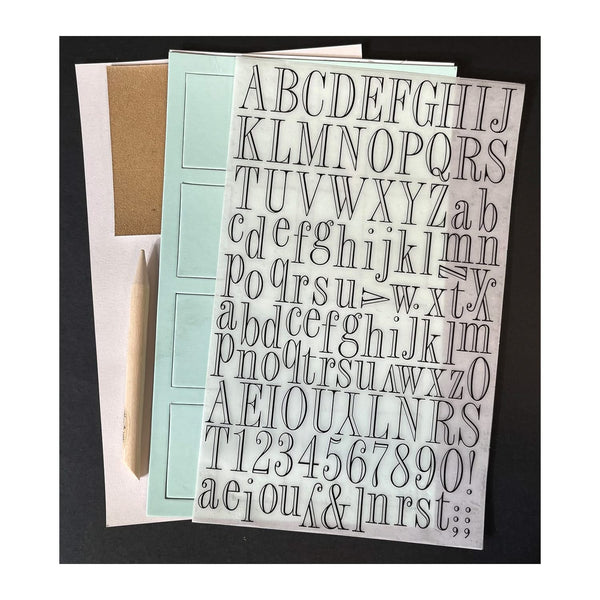 ABCDEFGHIJ
KLMNOPQRS
TUVWXYZab
cdefghijklmn
poqrsuvw.xztX
abdcefghijklm
pnoqtrsuvwxzO
AEIOUYLNRS
T1234567890!.
aeiouy&lnrst;;